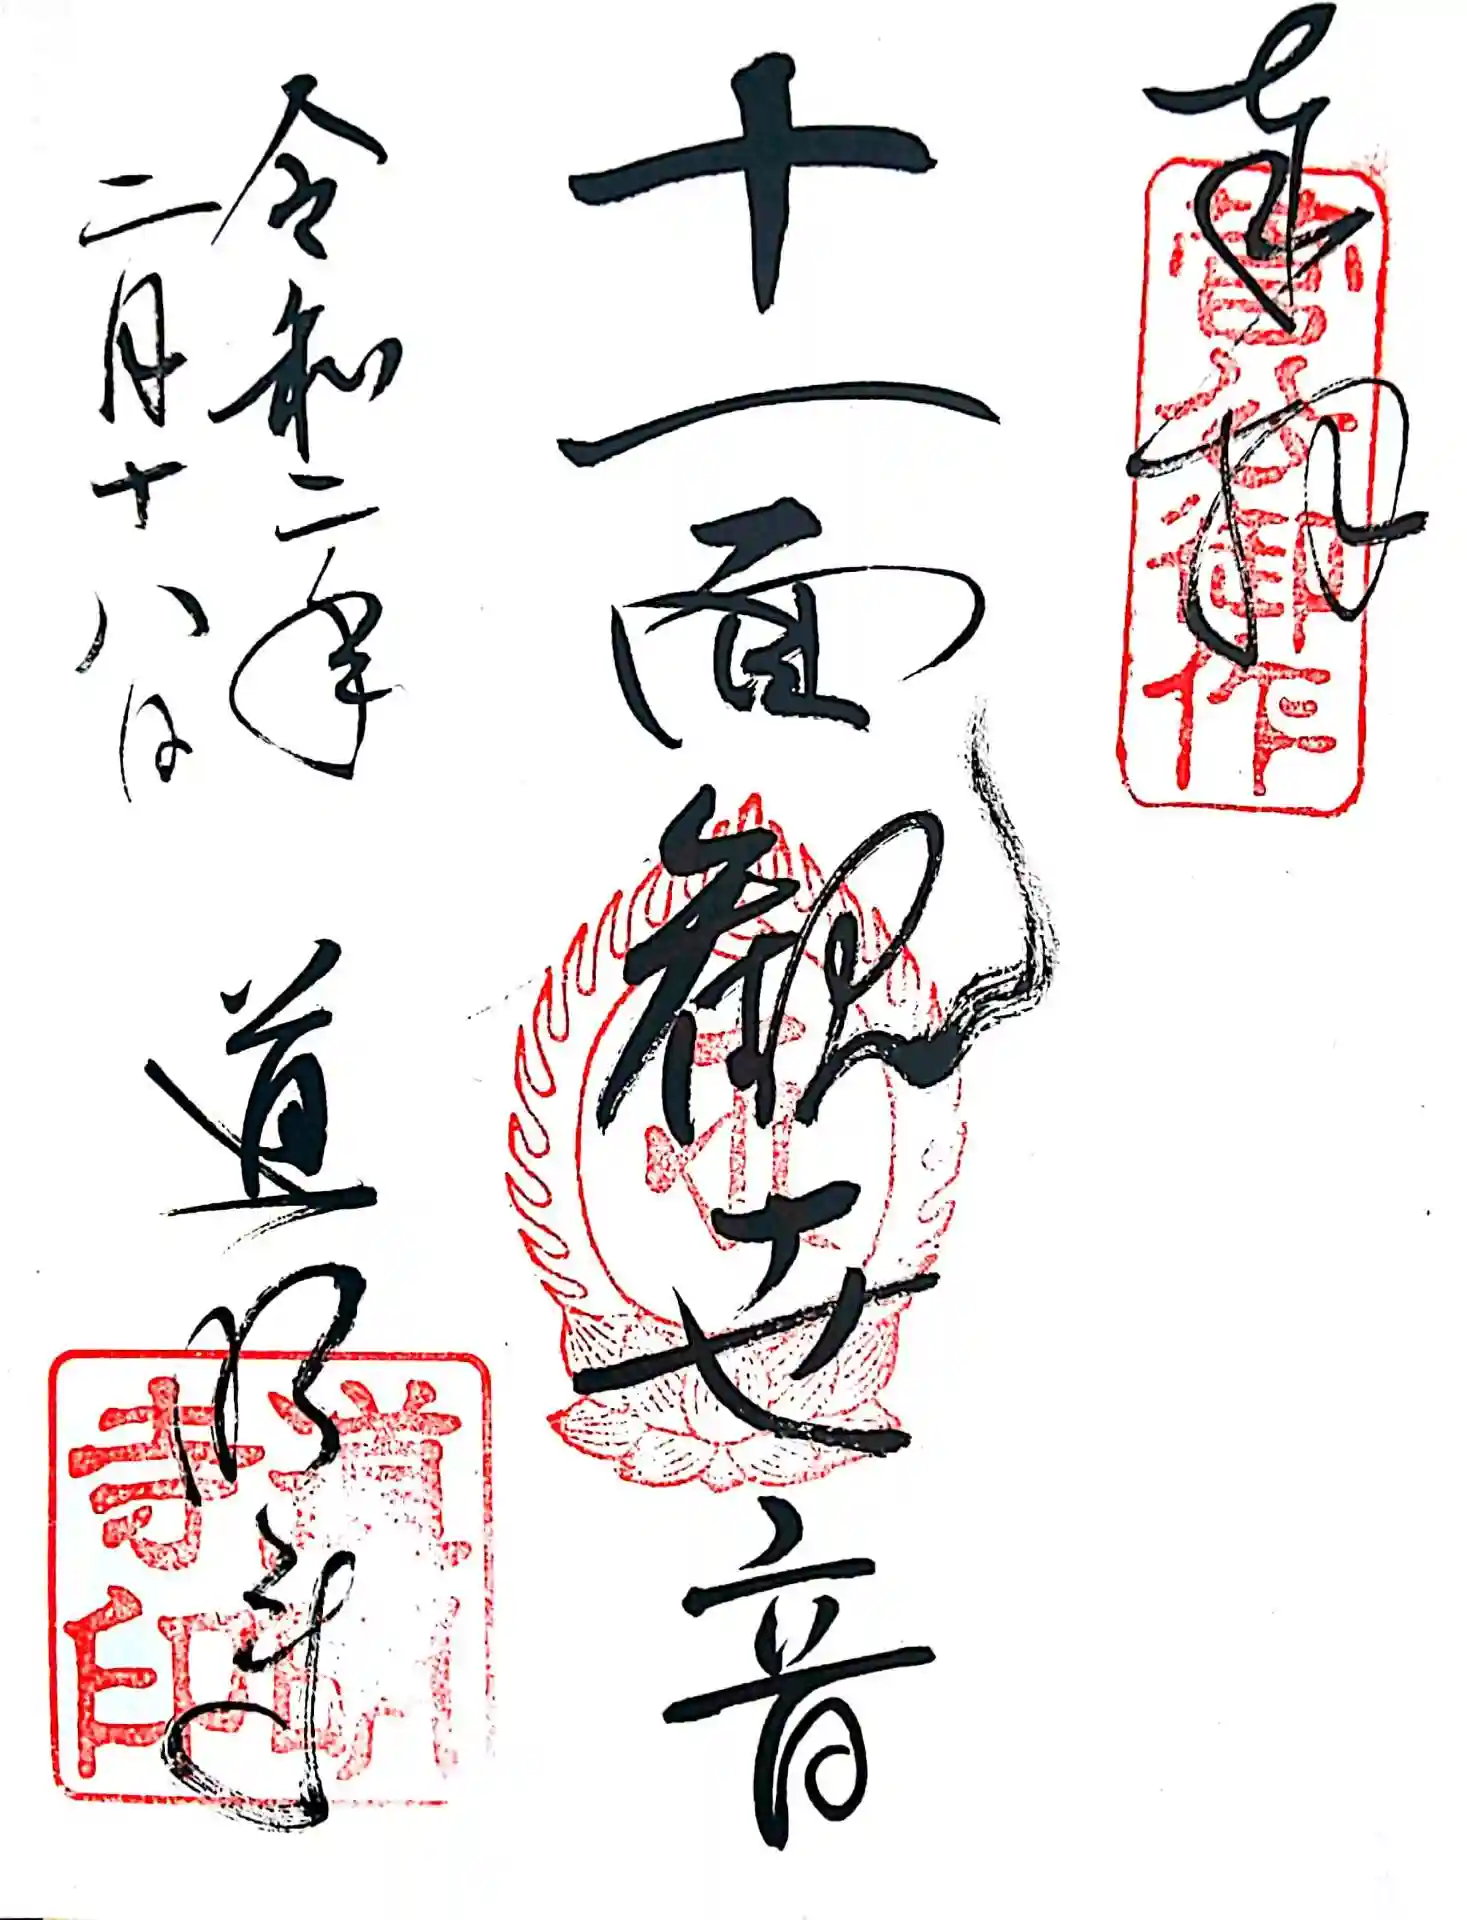 奉拝
菅公御作
十一面観世音
令和二年
二月十八日
道明寺
道明寺印